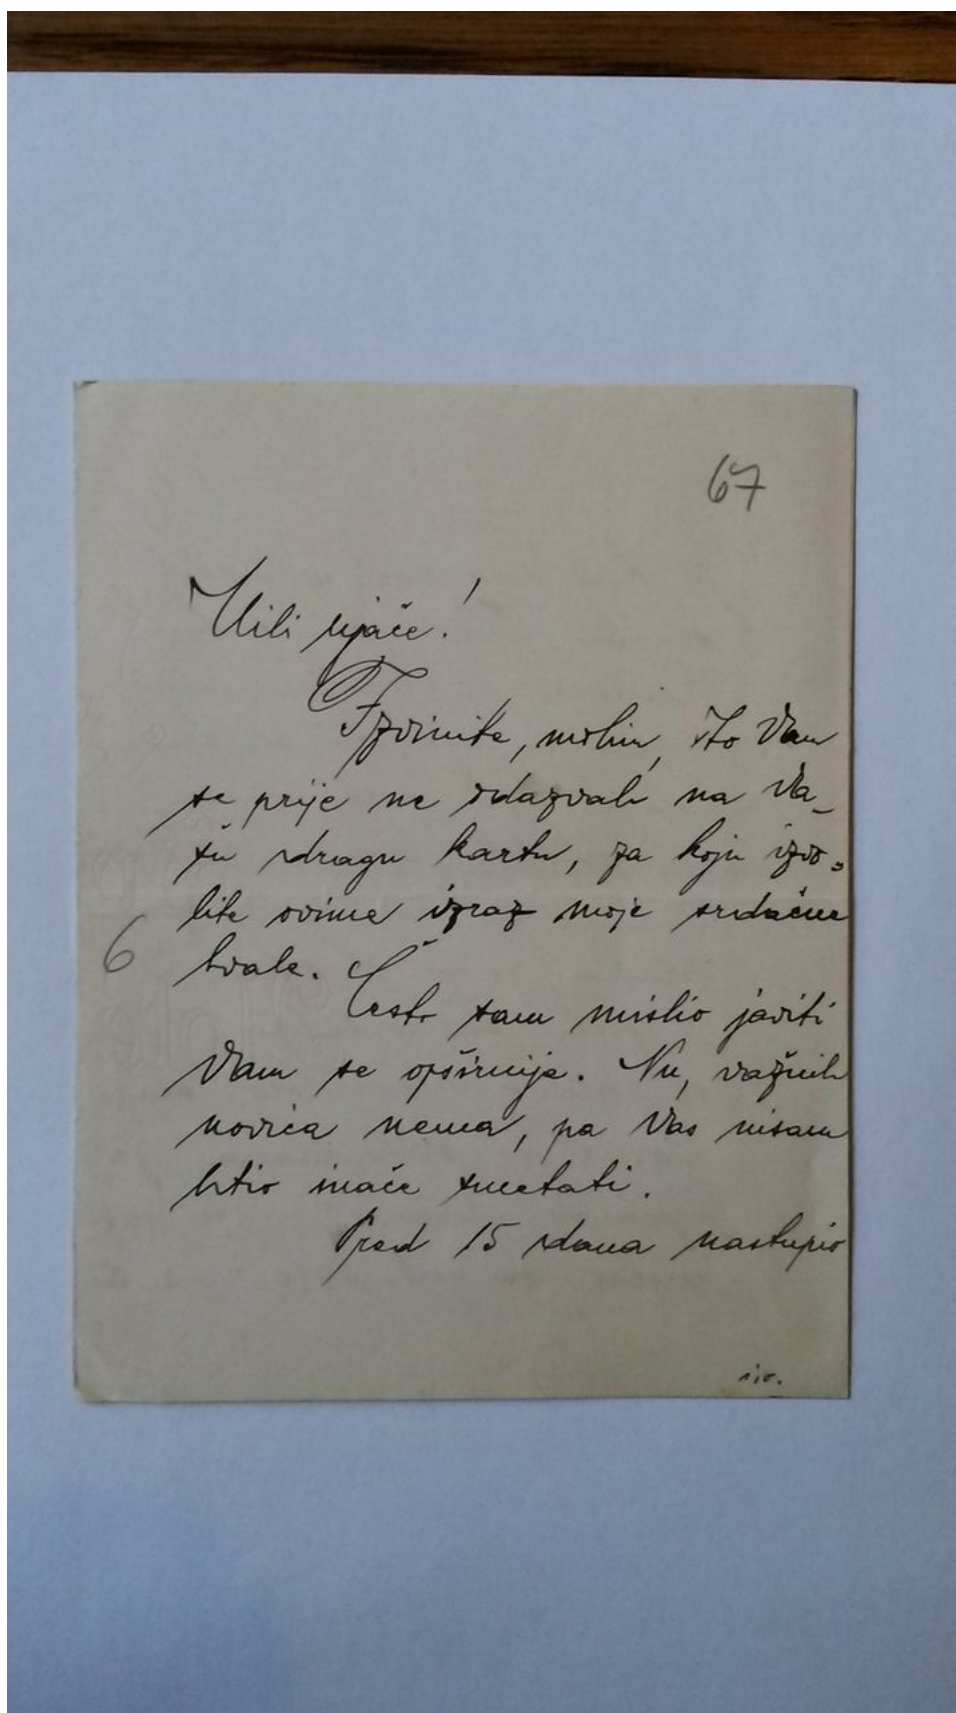 67
Mili ujače!
Izvinite, molim, što Vam
se prije ne odazvah na Va-
šu dragu kartu, za koju izvo-
lite ovime izraz moje srdačne
6
hvale.
Često sam mislio javiti
Vam se opširnije. Nu, važnih
novica nema, pa Vas nisam
htio inače smetati.
Pred 15 dana nastupio